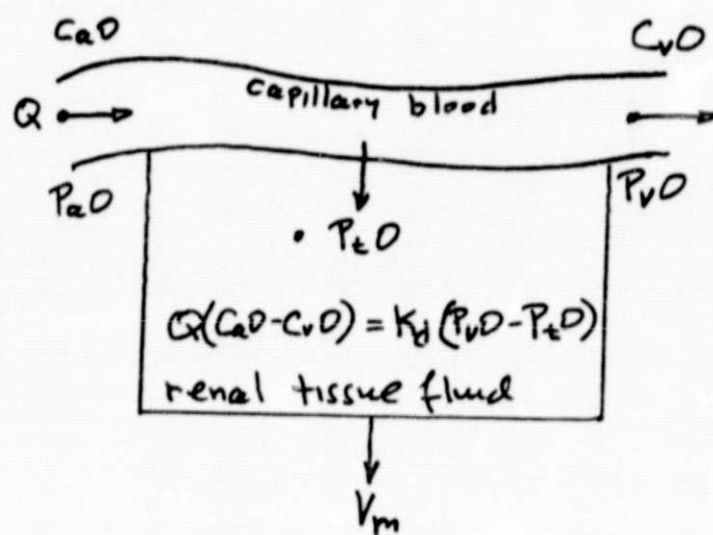 CaO CvO
capillary blood
Q
PaO PvO
PtO
Q(CaO-CvO) = Kd(PvO-PtO)
renal tissue fluid
Vm